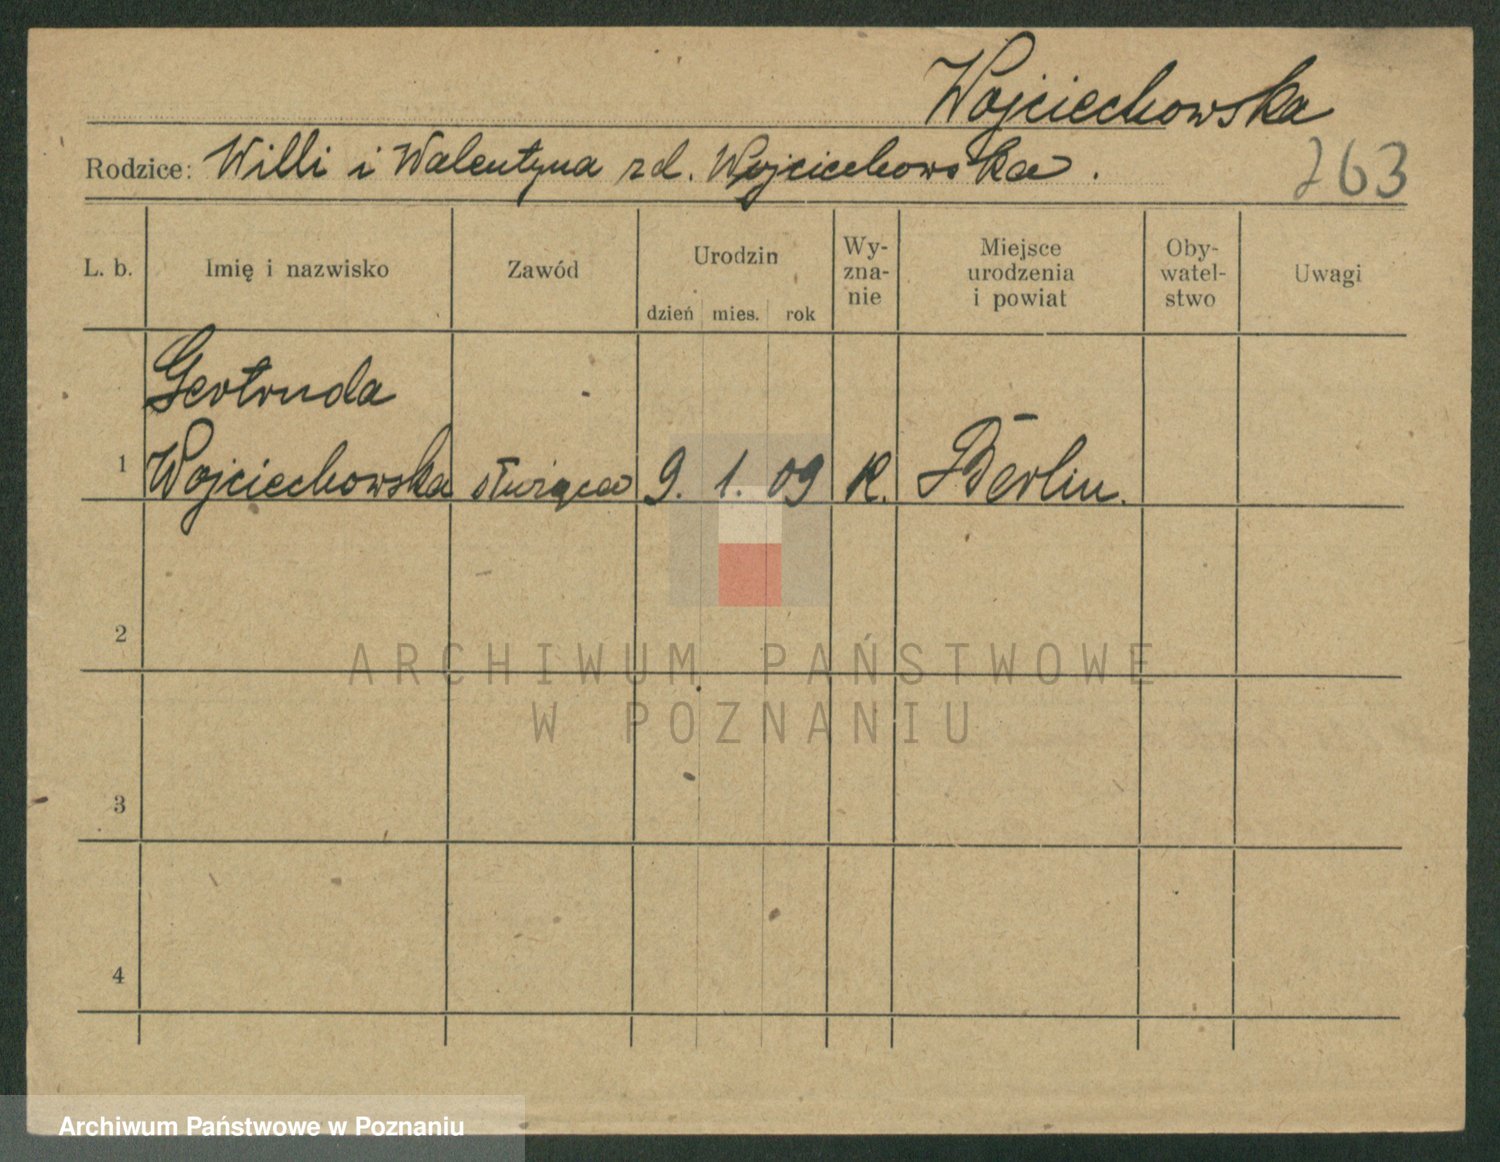 Wojciechowska
Rodzice: Willi i Walentyna zd. Wojciechowska.
263
L. b.
Imię i nazwisko
Zawód
Urodzin
dzień mies. rok
Wy-
zna-
nie
Miejsce
urodzenia
i powiat
Oby-
watel-
stwo
Uwagi
Gertruda
1 Wojciechowska służąca 9. 1. 09 K. Berlin.
2
ARCHIWUM PAŃSTWOWE
W POZNANIU
3
4
Archiwum Państwowe w Poznaniu